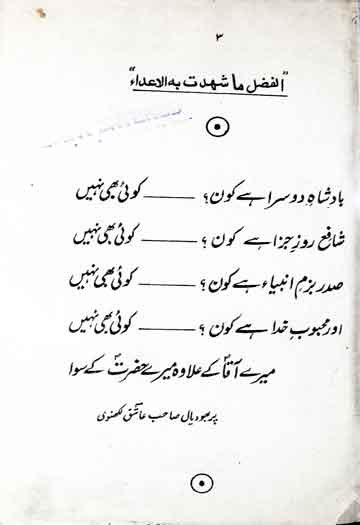 ۳
"الفضل ما شهدت به الاعداء"
بادشاہِ دوسرا ہے کون؟ ——— کوئی بھی نہیں
شافعِ روزِ جزا ہے کون؟ ——— کوئی بھی نہیں
صدرِ بزمِ انبیاء ہے کون؟ ——— کوئی بھی نہیں
اور محبوبِ خدا ہے کون؟ ——— کوئی بھی نہیں
میرے آقاؐ کے علاوہ میرے حضرتؐ کے سوا
پربھو دیال صاحب عاشق لکھنوی